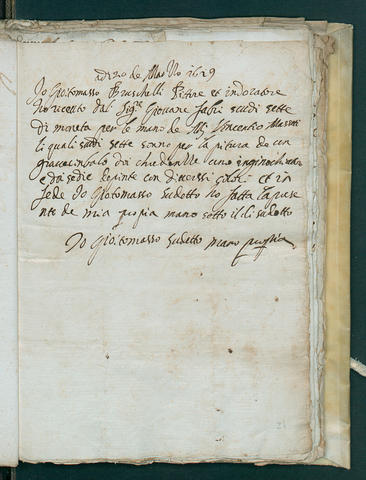 adi 20 de Marzo 1629
Io Gio:tomasso Bruschelli Pitore et indoratore
ho riceuto dal Sig.re Giovane Fabri scudi sette
di moneta per le mano de M. Vincentio Massuti
li quali scudi sette sonno per la pitura de un
gravecimbolo doi chredentie uno inginochiatore
e doi sedie depinte con diversi et in
fede Io Gio:tomasso sudetto ho fatta la prese
nte de mia propia mano sotto il di sudetto
Io Gio:tomasso sudetto mano propia